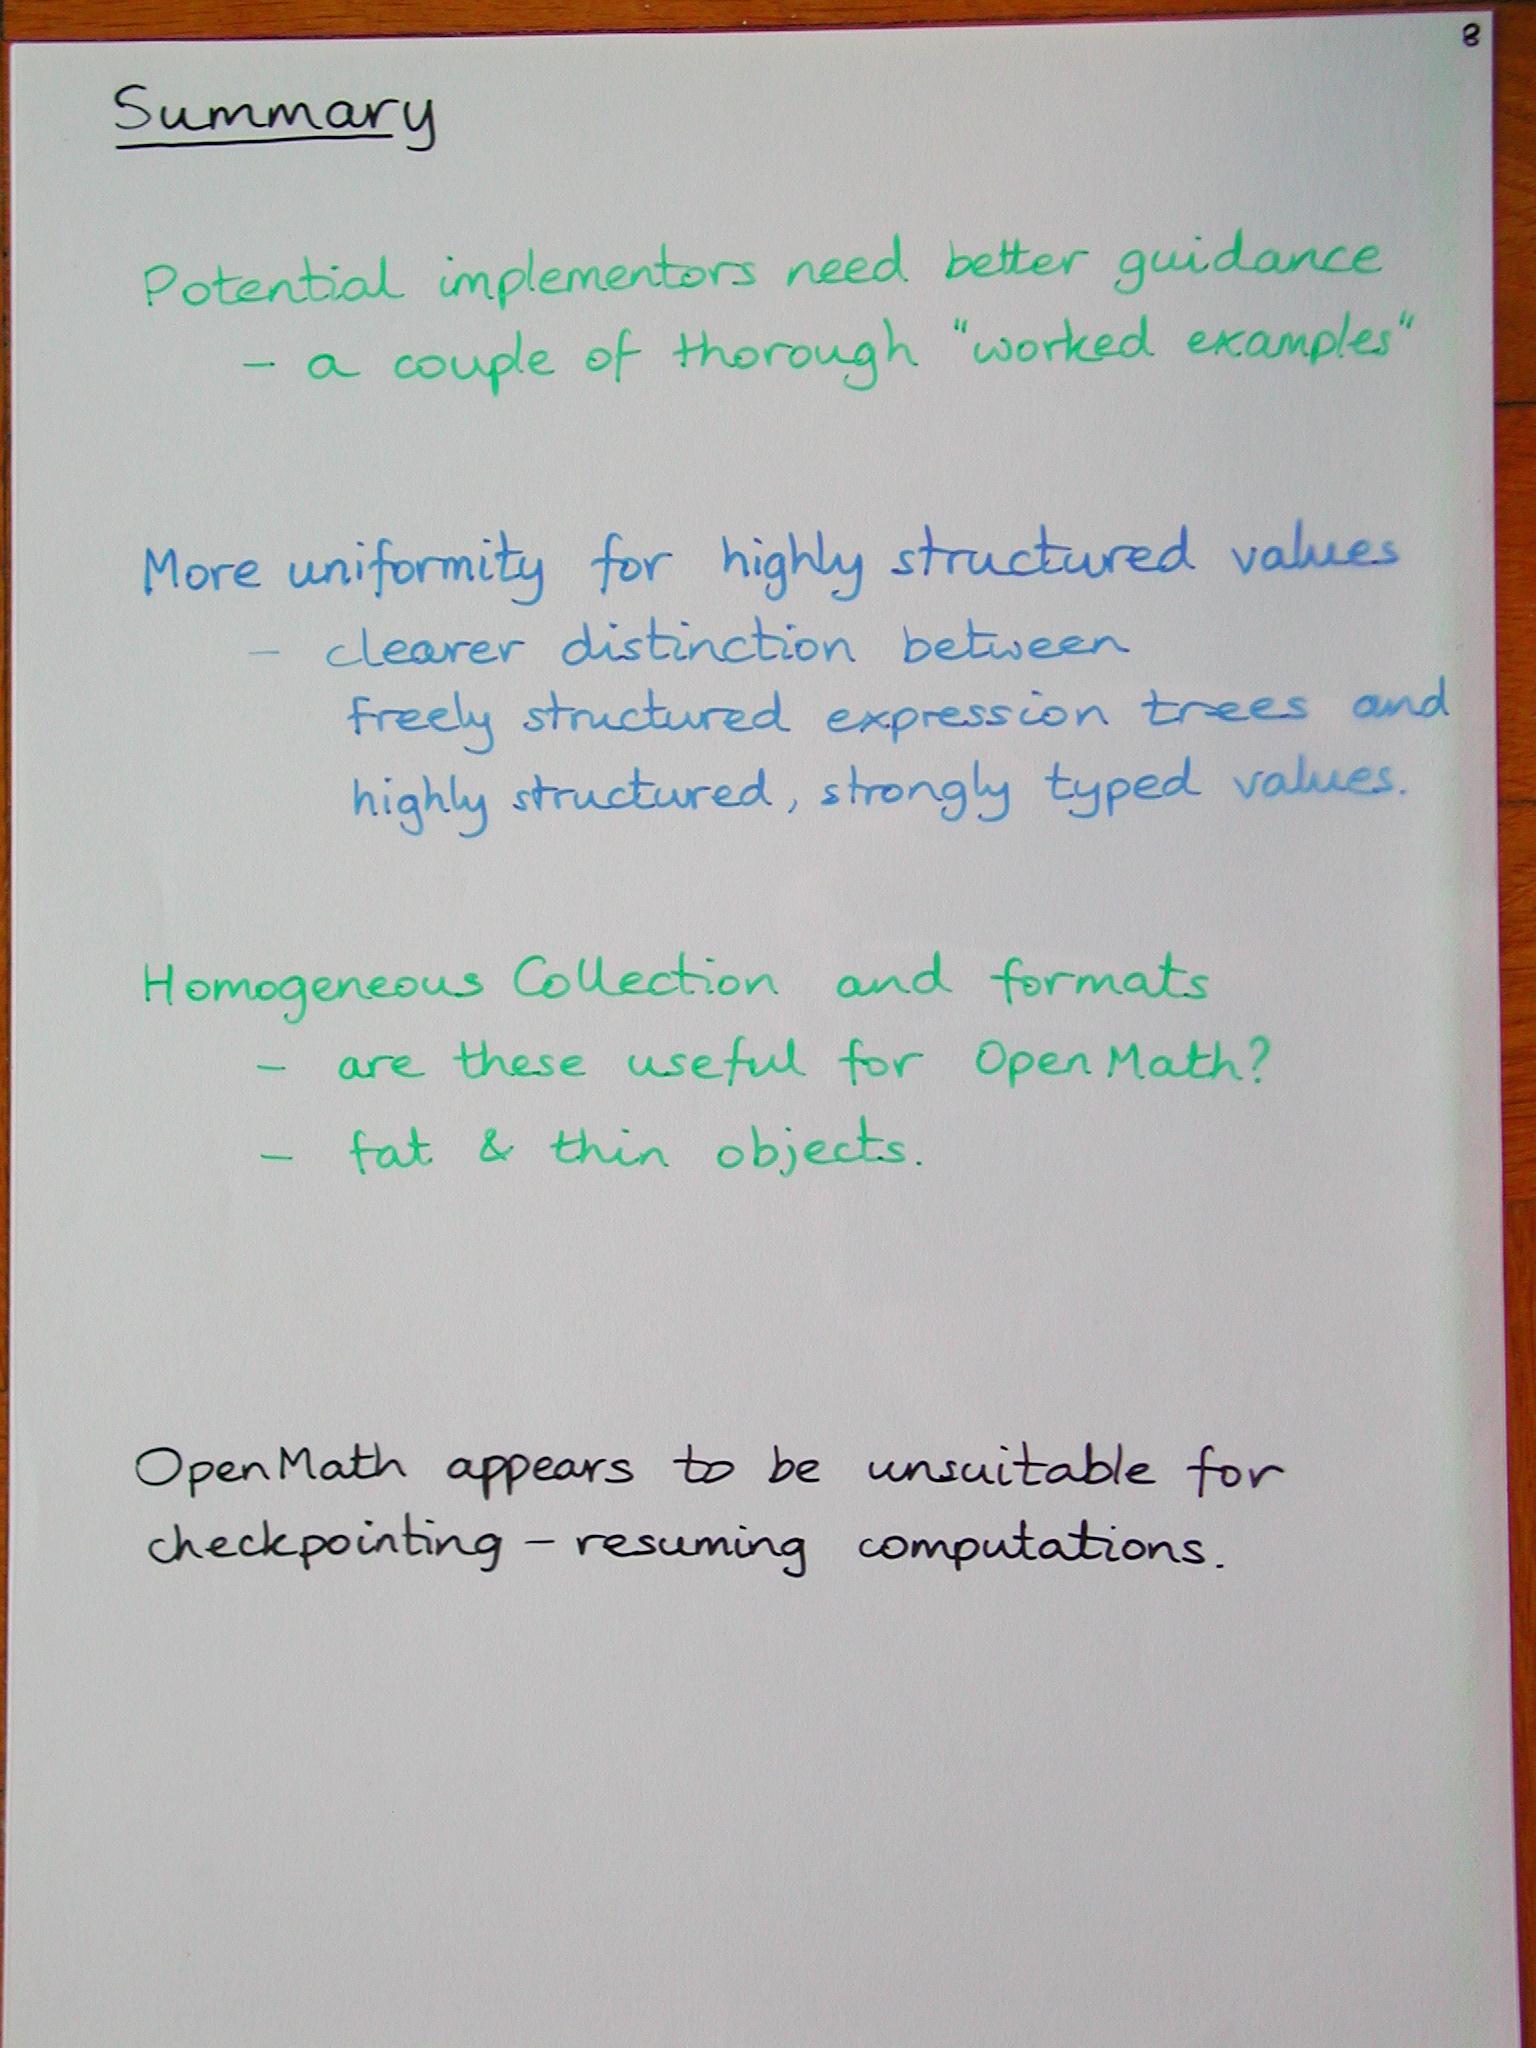 8
Summary
Potential implementors need better guidance
- a couple of thorough "worked examples"
More uniformity for highly structured values
- clearer distinction between
freely structured expression trees and
highly structured, strongly typed values.
Homogeneous Collection and formats
- are these useful for OpenMath?
- fat & thin objects.
OpenMath appears to be unsuitable for
checkpointing - resuming computations.